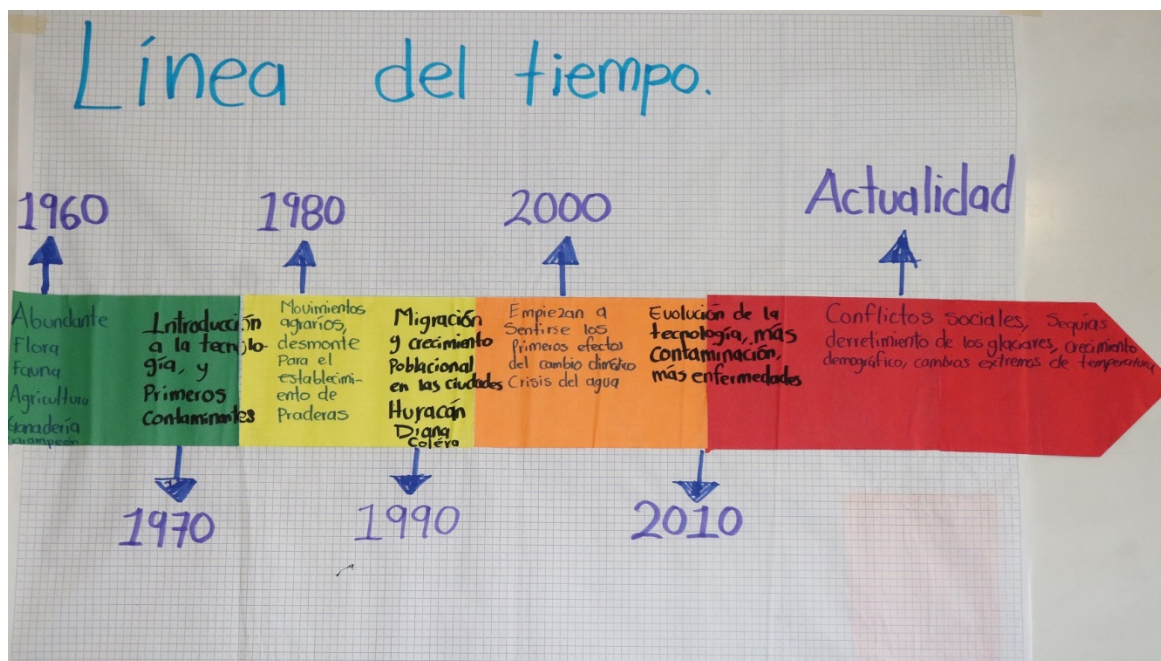 Línea del tiempo.
1960
1980
2000
Actualidad
Abundante
Flora
Fauna
Agricultura
Ganadería
Introducción
a la tecnolo-
gía, y
Primeros
Contaminantes
Movimientos
agrários,
desmonte
Para el
establecimi-
ento de
Praderas
Migración
y crecimiento
Poblacional
en las ciudades
Huracán
Diana
Coléra
Empiezan a
Sentirse los
Primeros efectos
del cambio climático
Crisis del agua
Evolución de la
tecnología, más
Contaminación,
más enfermedades
Conflictos sociales, Sequías
derretimiento de los glaciares, crecimiento
demográfico, cambios extremos de temperatura
1970
1990
2010